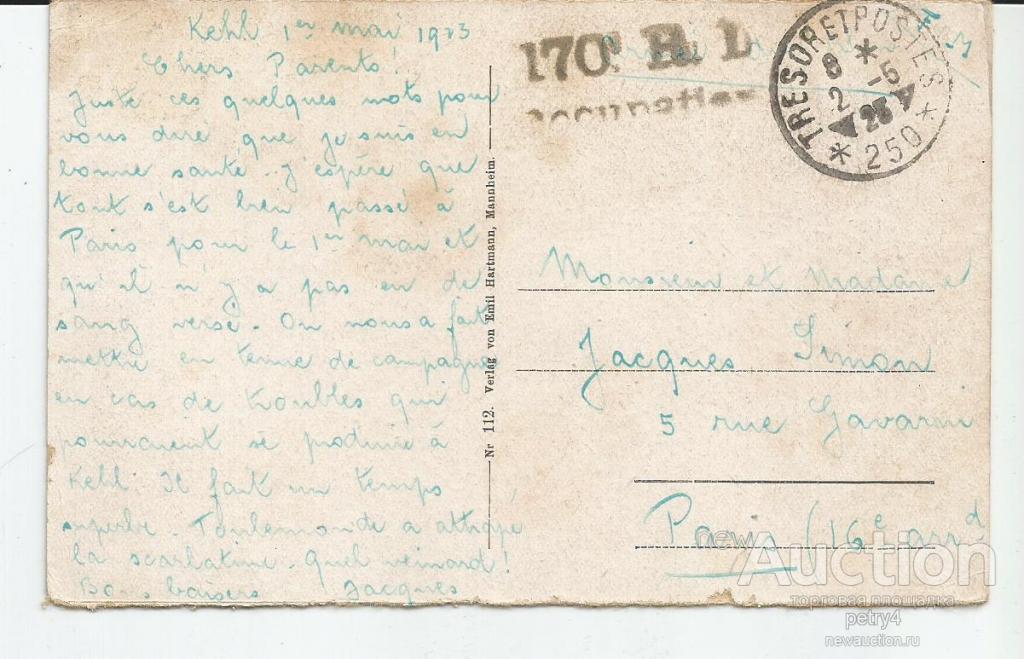 Kehl 1er mai 1923
Chers Parents!
Juste ces quelques mots pour
vous dire que je suis en
bonne santé. J'espère que
tout s'est bien passé à
Paris pour le 1er mai et
qu'il n'y a pas eu de
sang versé. On nous a fait
mettre en tenue de campagne
en cas de troubles qui
pourraient se produire à
Kehl. Il fait un temps
superbe. Toulemonde a attrapé
la scarlatine. Quel veinard!
Bons baisers Jacques
Nr 112. Verlag von Emil Hartmann, Mannheim.
170e
occupation
TRESOR ET POSTES
8 * 5
2
23
* 250 *
Monsieur et Madame
Jacques Simon
5 rue Gavarni
Paris (16e arrd
newAuction
торговая площадка
petry4
newauction.ru